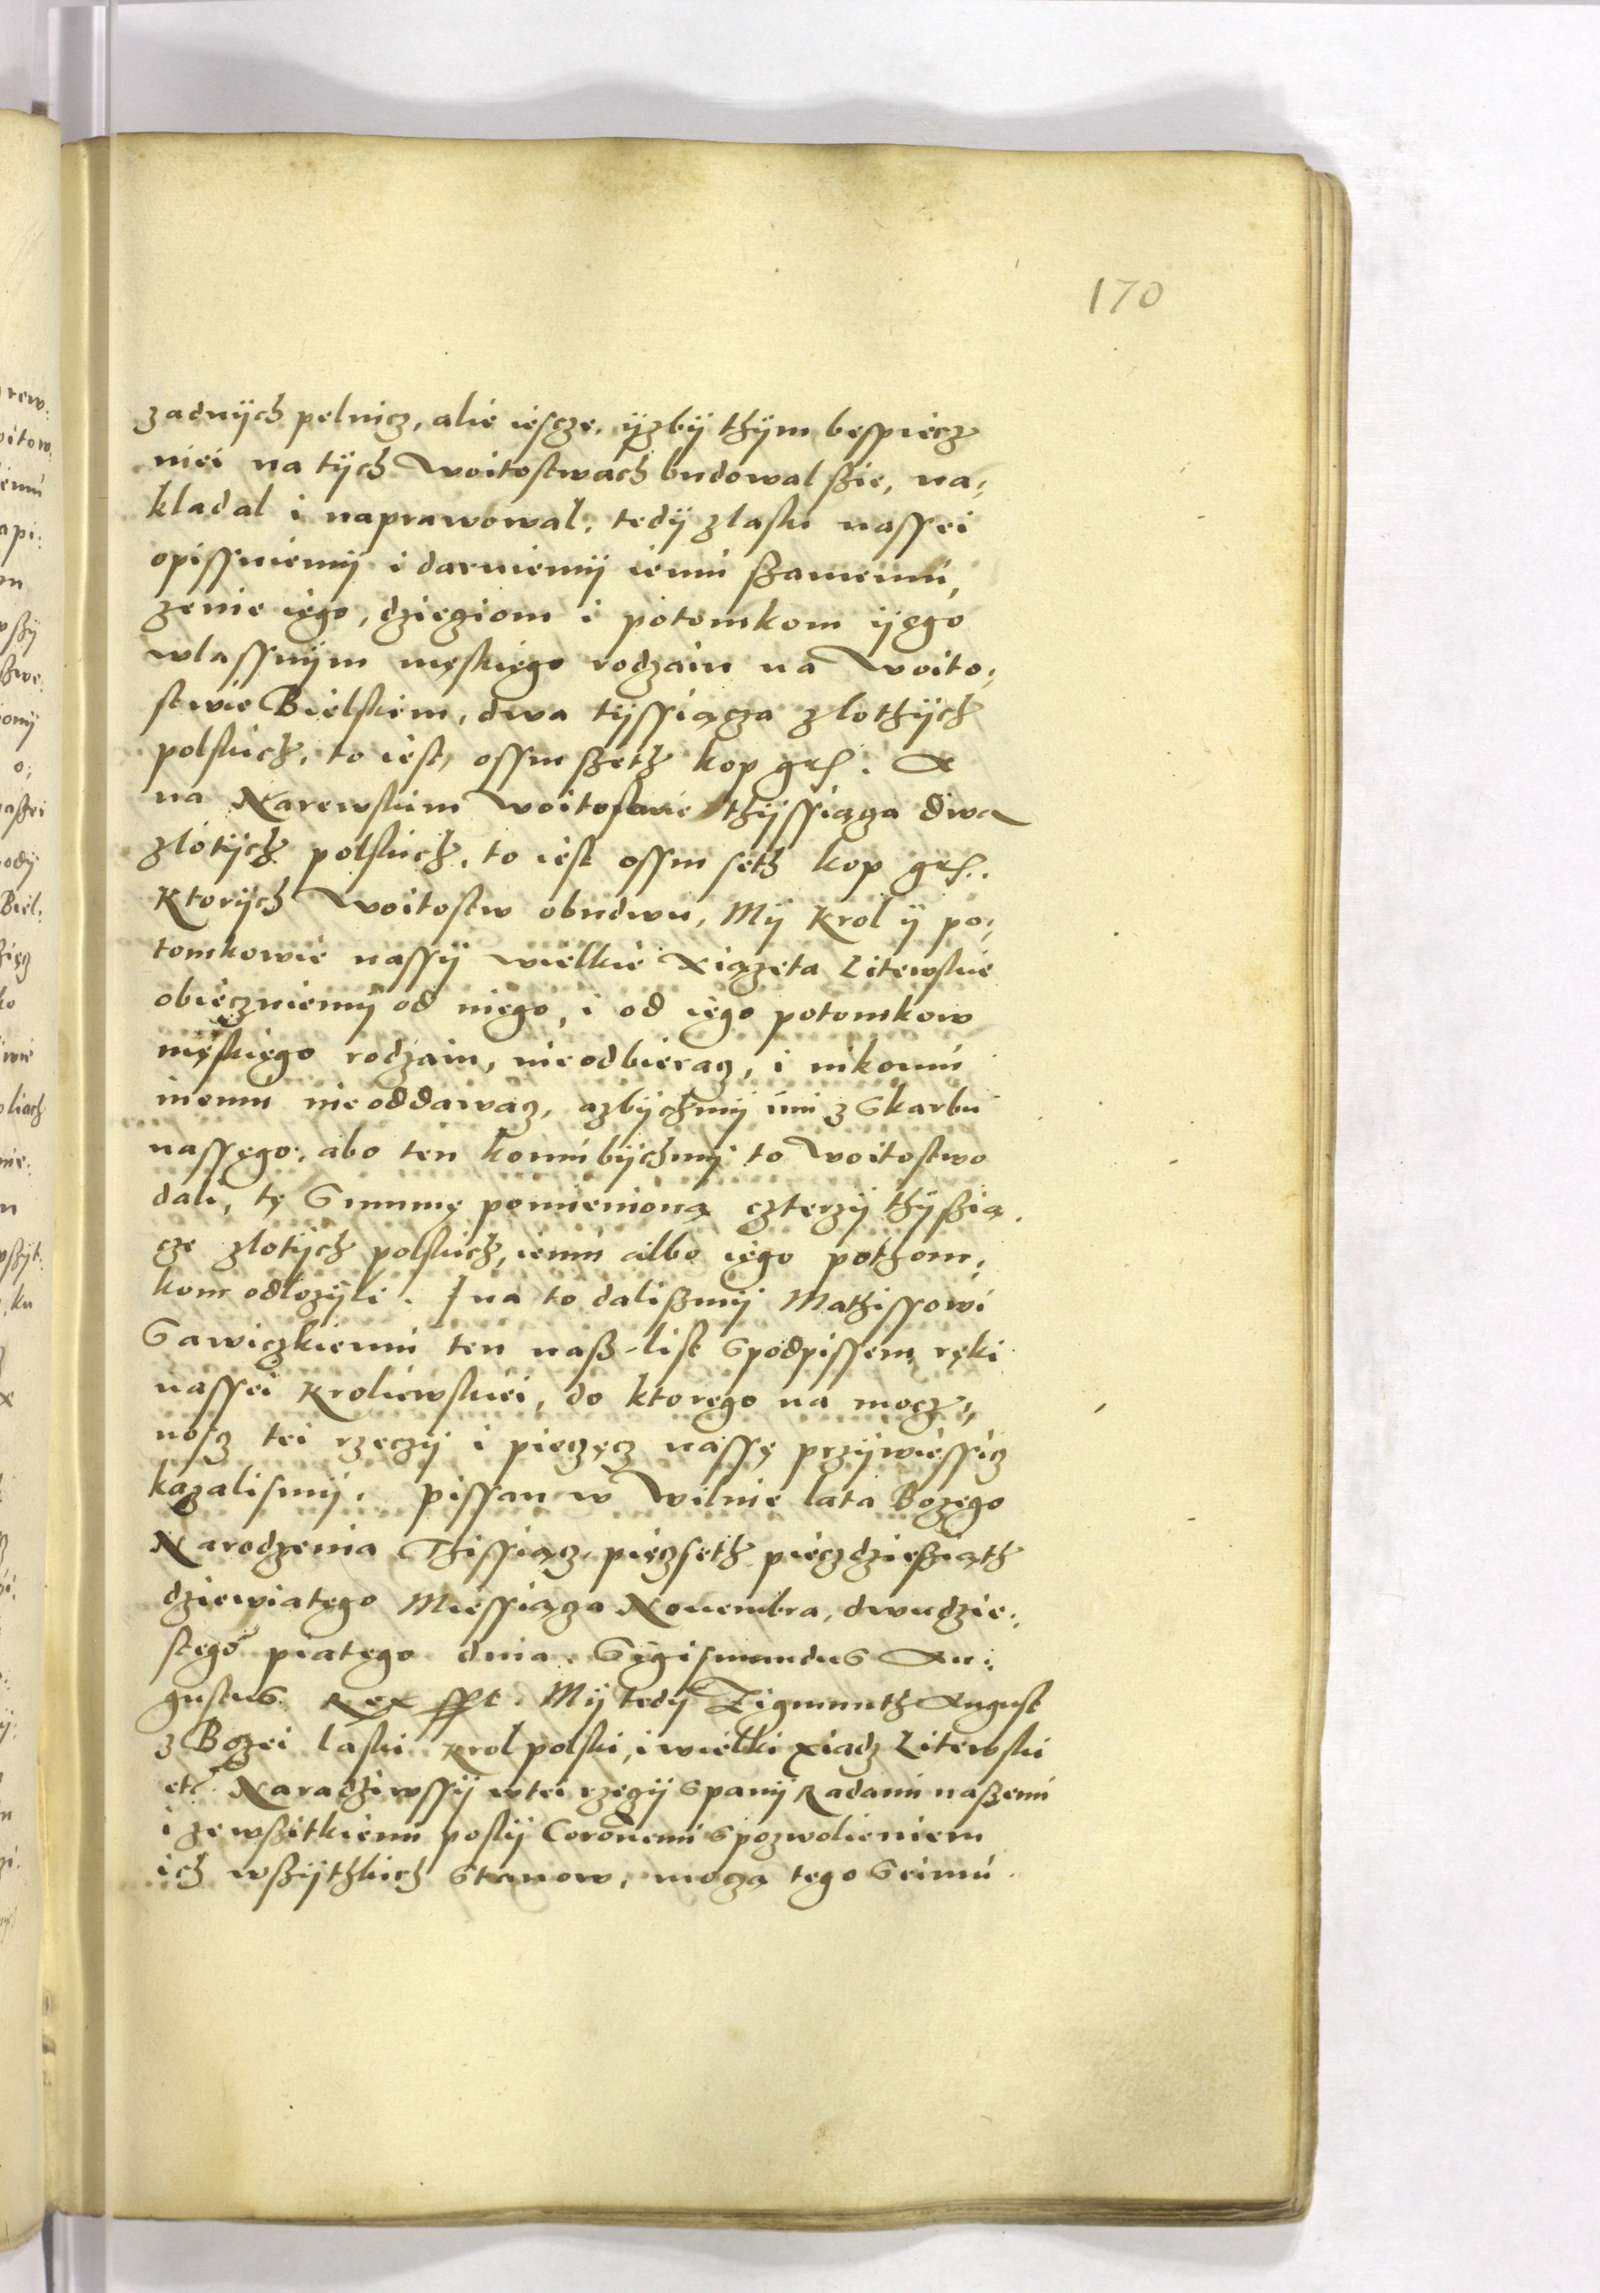 170
zadnÿch pelnicz, alie iescze, ÿzbÿ thÿm bespiecz
niei na tÿch Woitostwach budowal ßie, na¬
kladal i naprawowal, tedÿ z laski nassei
opissuiemÿ i daruiemÿ iemu ßamemu,
zenie iego, dzieciom i potomkom ÿego
wlassnÿm męskiego rodzaiu na Woito¬
stwie Bielskiem, dwa tÿssiącza zlothÿch
polskich, to iest, ossm ßeth kop grs. A
na Narewskim Woitostwie thÿssiącza dwa
zlotÿch polskich, to iest ossm seth kop grs.
Ktorÿch Woitostw obudwu, Mÿ Krol ÿ po¬
tomkowie nassÿ wielkie Xiązeta Litewskie
obieczuiemÿ od niego, i od iego potomkow
męskiego rodzaiu, nie odbieracz, i nikomu
inemu nie oddawacz, azbÿchmÿ imi z Skarbu
nassego, abo ten komu bÿchmÿ to Woitostwo
dali, tę Summę pomienioną czterzÿ thÿßią
cze zlotÿch polskich, iemu albo iego pothom¬
kom odlozÿli. I na to dalißmÿ Mathissowi
Sawiczkiemu ten naß list S podpissem ręki
nassei Kroliewskiei, do ktorego na mocz¬
nosz tei rzeczÿ i pieczęcz nassę przÿwiessicz
kazalismÿ. Pissan w Wilnie lata Bozego
Narodzenia Thissiącz pięczseth piečzdzießiąth
dziewiatego Miessiącza Nouembra, dwudzie¬
stego piatego dnia. Sÿgismundus Au¬
gustus Rex sspt. Mÿ tedÿ Zigmunth August
z Bozei laski Krol polski, i wielki Xiądz Litewski
etc. Naradziwssÿ w tei rzeczÿ S panÿ Radami naßemi
i ze wßitkiemi poslÿ Coronnemi S pozwolieniem
ich wßÿthkich Stanow, moczą tego Seimu